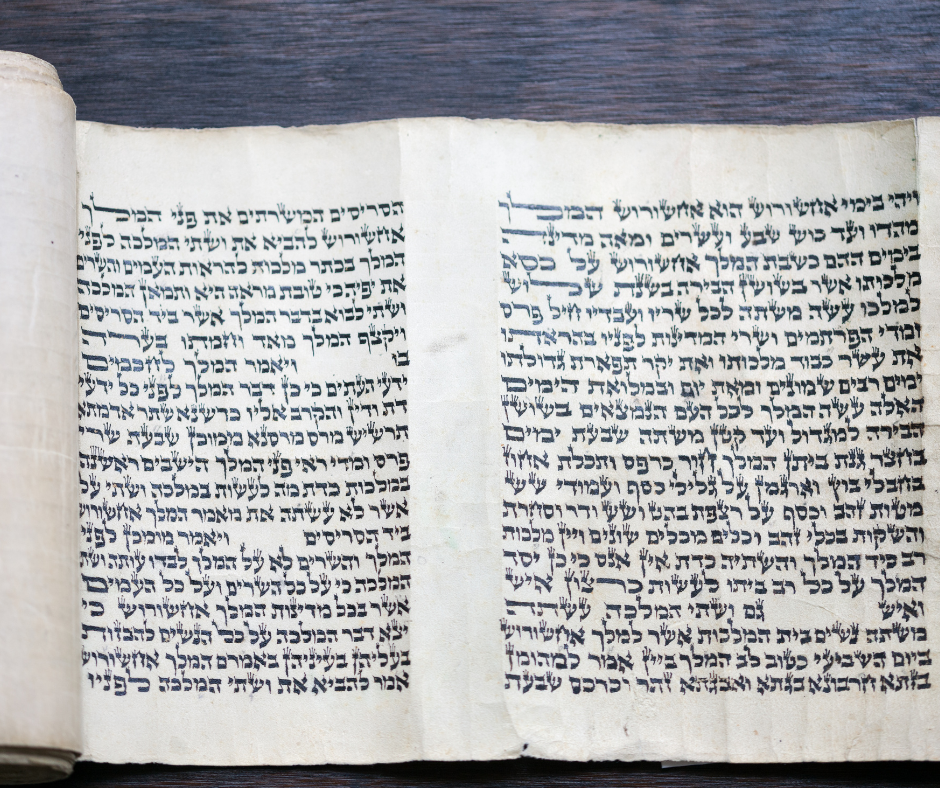 ויהי בימי אחשורוש הוא אחשורוש המלך
מהדו ועד כוש שבע ועשרים ומאה מדינה
בימים ההם כשבת המלך אחשורוש על כסא
מלכותו אשר בשושן הבירה בשנת שלוש
למלכו עשה משתה לכל שריו ועבדיו חיל פרס
ומדי הפרתמים ושרי המדינות לפניו בהראתו
את עשר כבוד מלכותו ואת יקר תפארת גדולתו
ימים רבים שמונים ומאת יום ובמלואת הימים
האלה עשה המלך לכל העם הנמצאים בשושן
הבירה למגדול ועד קטן משתה שבעת ימים
בחצר גנת ביתן המלך חור כרפס ותכלת אחוז
בחבלי בוץ וארגמן על גלילי כסף ועמודי שש
מטות זהב וכסף על רצפת בהט ושש ודר וסחרת
והשקות בכלי זהב וכלים מכלים שונים ויין מלכות
רב כיד המלך והשתיה כדת אין אנס כי כן יסד
המלך על כל רב ביתו לעשות כרצון איש
ואיש גם ושתי המלכה עשתה
משתה נשים בית המלכות אשר למלך אחשורוש
ביום השביעי כטוב לב המלך ביין אמר למהומן
בזתא חרבונא בגתא ואבגתא זתר וכרכס שבעת
הסריסים המשרתים את פני המלך
אחשורוש להביא את ושתי המלכה לפני
המלך בכתר מלכות להראות העמים והשרים
את יפיה כי טובת מראה היא ותמאן המלכה
ושתי לבוא בדבר המלך אשר ביד הסריסים
ויקצף המלך מאד וחמתו בערה
בו ויאמר המלך לחכמים
ידעי העתים כי כן דבר המלך לפני כל ידעי
דת ודין והקרב אליו כרשנא שתר אדמתא
תרשיש מרס מרסנא ממוכן שבעת שרי
פרס ומדי ראי פני המלך הישבים ראשנה
במלכות כדת מה לעשות במלכה ושתי על
אשר לא עשתה את מאמר המלך אחשורוש
ביד הסריסים ויאמר מומכן לפני
המלך והשרים לא על המלך לבדו עותה ושתי
המלכה כי על כל השרים ועל כל העמים
אשר בכל מדינות המלך אחשורוש כי
יצא דבר המלכה על כל הנשים להבזות
בעליהן בעיניהן באמרם המלך אחשורוש
אמר להביא את ושתי המלכה לפניו